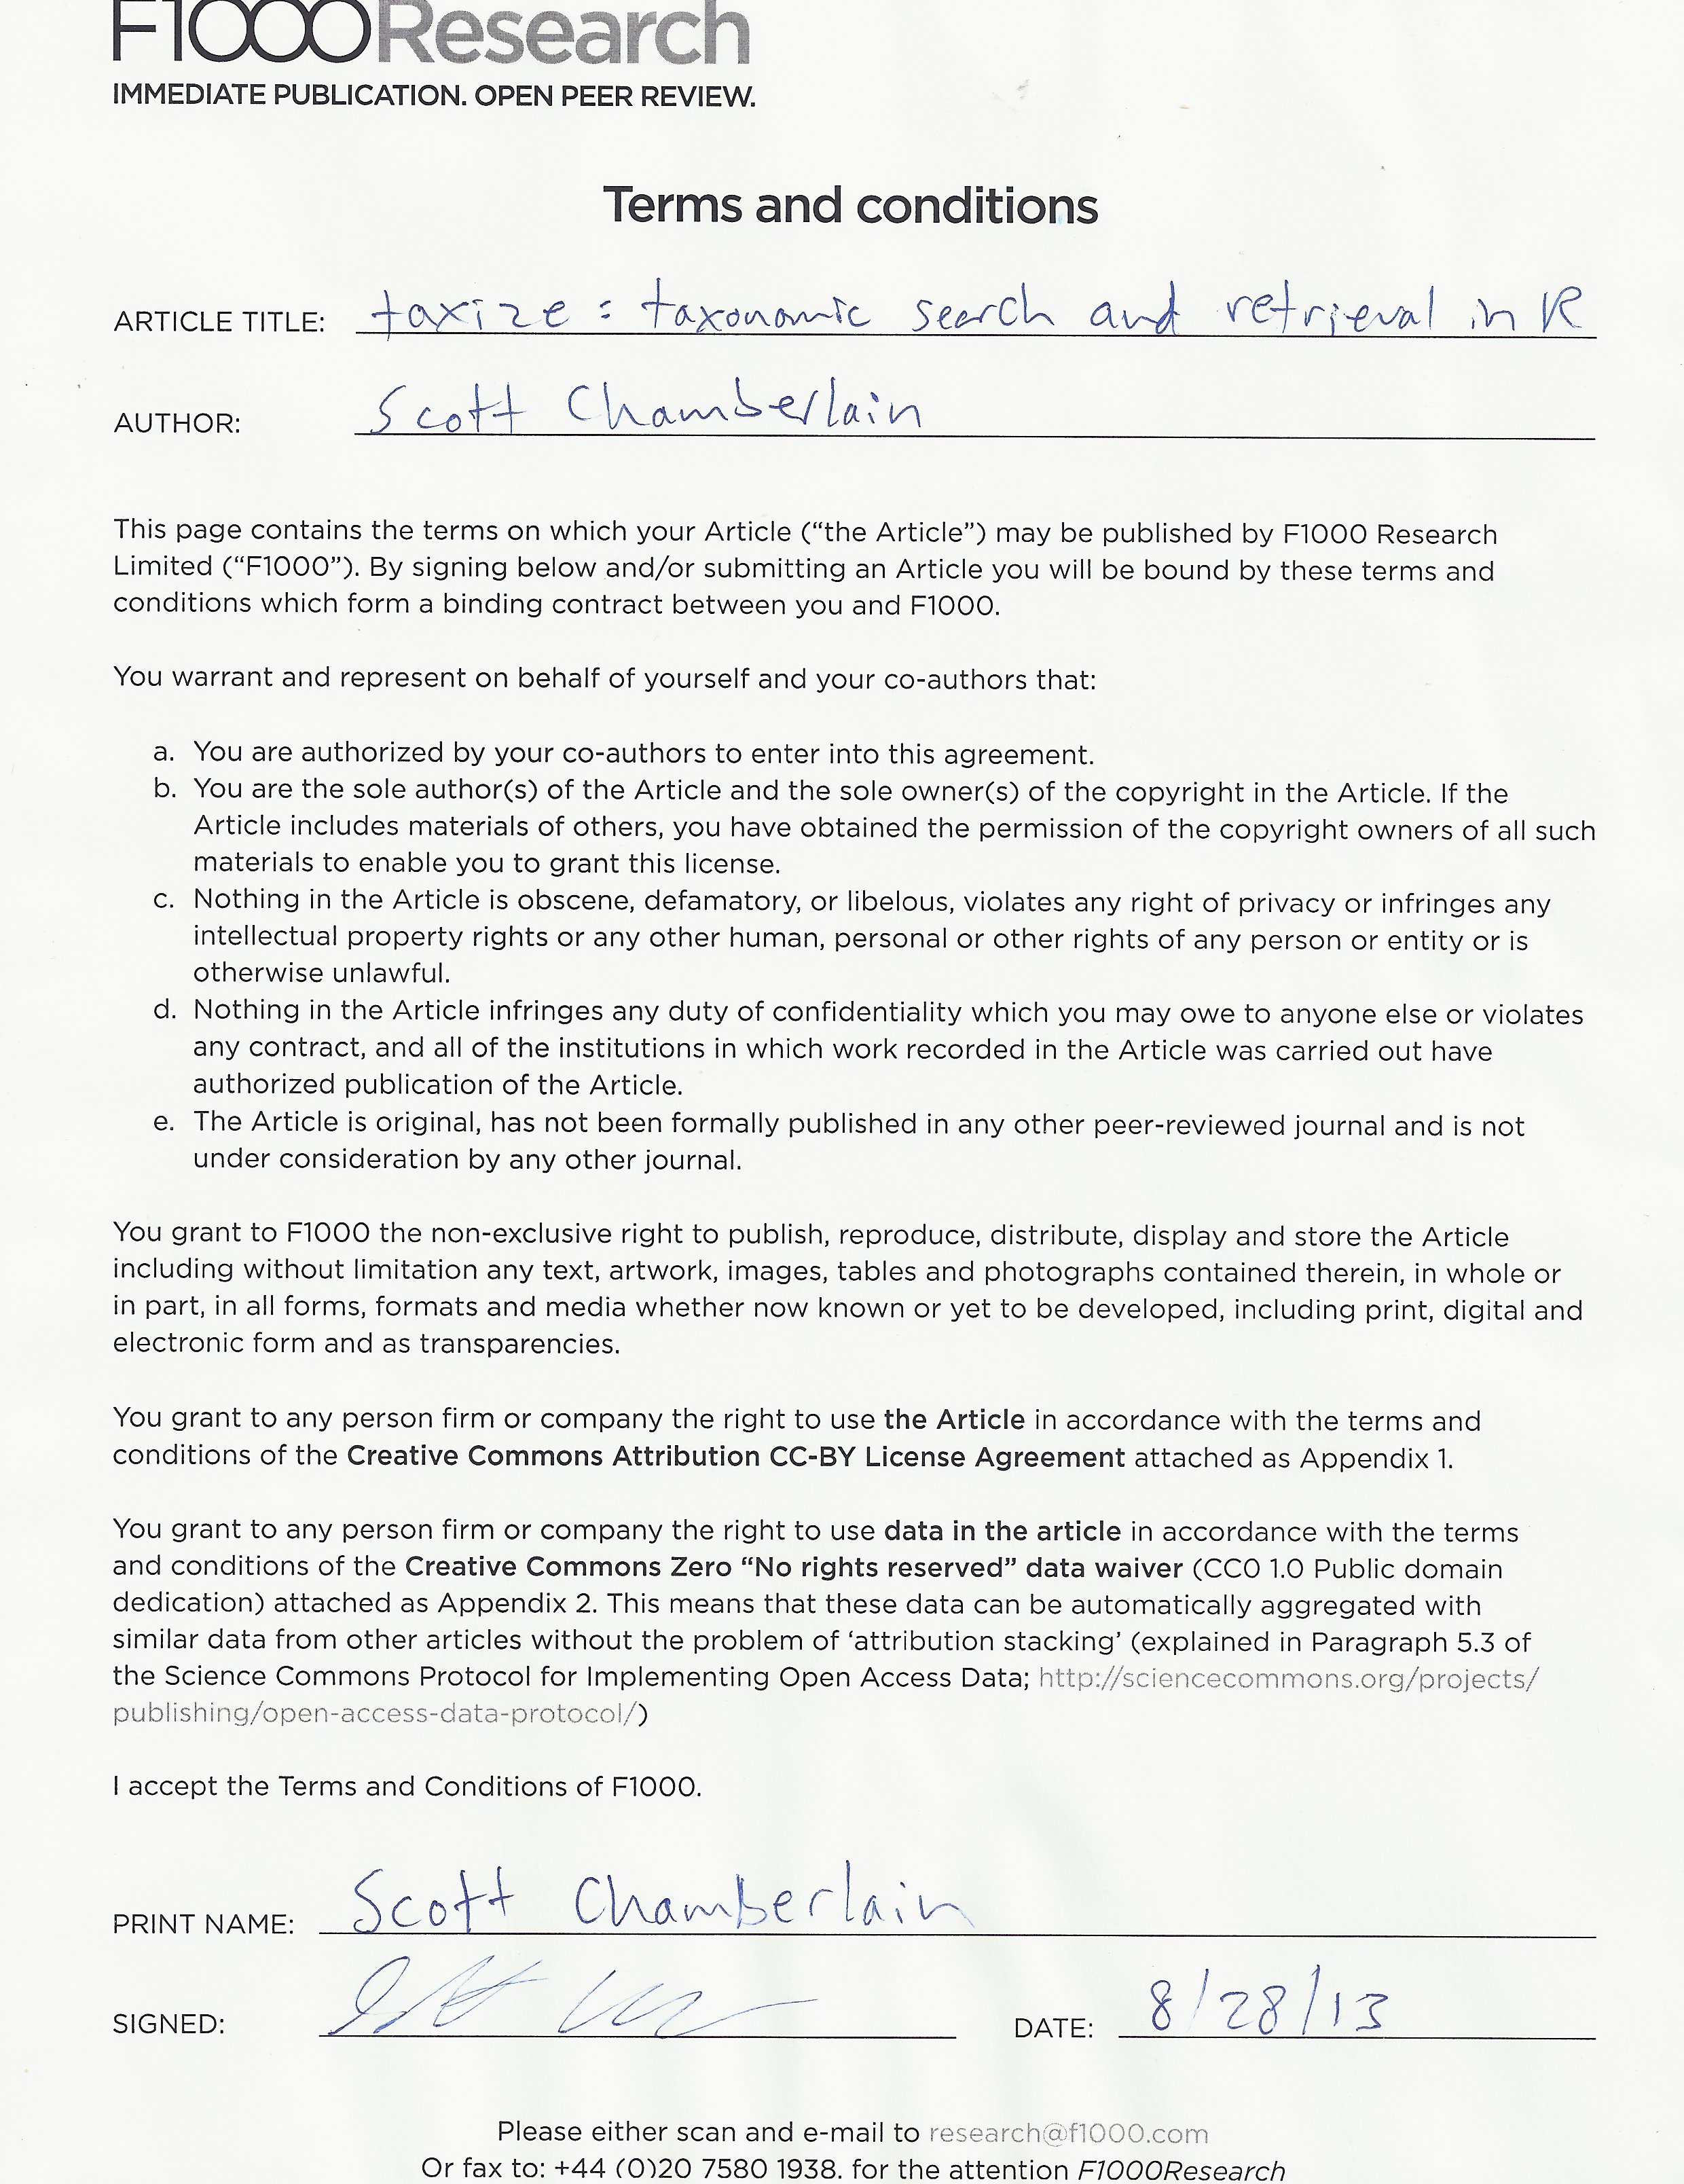 F1000Research
IMMEDIATE PUBLICATION. OPEN PEER REVIEW.
Terms and conditions
ARTICLE TITLE: taxize : taxonomic search and retrieval in R
AUTHOR: Scott Chamberlain
This page contains the terms on which your Article (“the Article”) may be published by F1000 Research
Limited (“F1000”). By signing below and/or submitting an Article you will be bound by these terms and
conditions which form a binding contract between you and F1000.
You warrant and represent on behalf of yourself and your co-authors that:
a. You are authorized by your co-authors to enter into this agreement.
b. You are the sole author(s) of the Article and the sole owner(s) of the copyright in the Article. If the
Article includes materials of others, you have obtained the permission of the copyright owners of all such
materials to enable you to grant this license.
c. Nothing in the Article is obscene, defamatory, or libelous, violates any right of privacy or infringes any
intellectual property rights or any other human, personal or other rights of any person or entity or is
otherwise unlawful.
d. Nothing in the Article infringes any duty of confidentiality which you may owe to anyone else or violates
any contract, and all of the institutions in which work recorded in the Article was carried out have
authorized publication of the Article.
e. The Article is original, has not been formally published in any other peer-reviewed journal and is not
under consideration by any other journal.
You grant to F1000 the non-exclusive right to publish, reproduce, distribute, display and store the Article
including without limitation any text, artwork, images, tables and photographs contained therein, in whole or
in part, in all forms, formats and media whether now known or yet to be developed, including print, digital and
electronic form and as transparencies.
You grant to any person firm or company the right to use the Article in accordance with the terms and
conditions of the Creative Commons Attribution CC-BY License Agreement attached as Appendix 1.
You grant to any person firm or company the right to use data in the article in accordance with the terms
and conditions of the Creative Commons Zero “No rights reserved” data waiver (CC0 1.0 Public domain
dedication) attached as Appendix 2. This means that these data can be automatically aggregated with
similar data from other articles without the problem of ‘attribution stacking’ (explained in Paragraph 5.3 of
the Science Commons Protocol for Implementing Open Access Data; http://sciencecommons.org/projects/
publishing/open-access-data-protocol/)
I accept the Terms and Conditions of F1000.
PRINT NAME: Scott Chamberlain
SIGNED: DATE: 8/28/13
Please either scan and e-mail to research@f1000.com
Or fax to: +44 (0)20 7580 1938. for the attention F1000Research